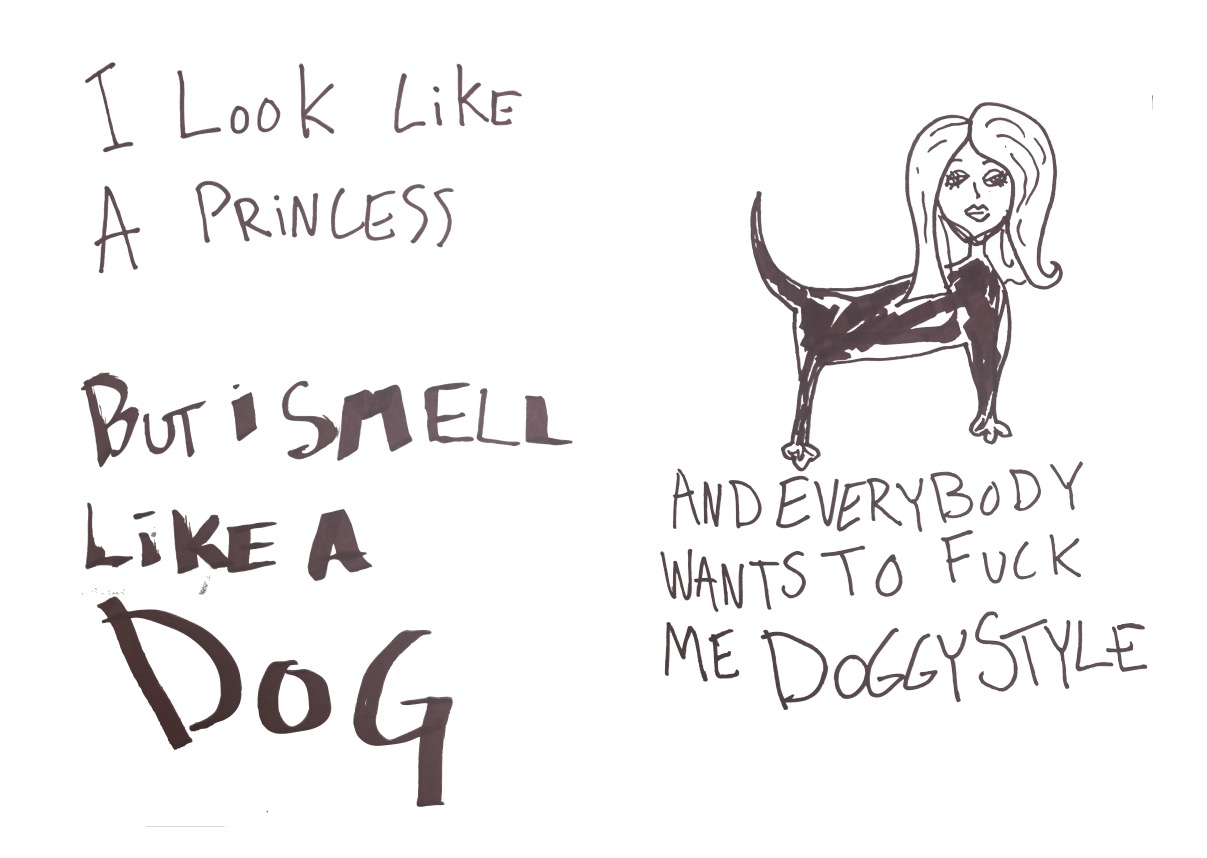 I LOOK LiKE
A PRiNCESS
BUT i SMELL
LiKE A
DOG
AND EVERYBODY
WANTS TO FUCK
ME DOGGYSTYLE